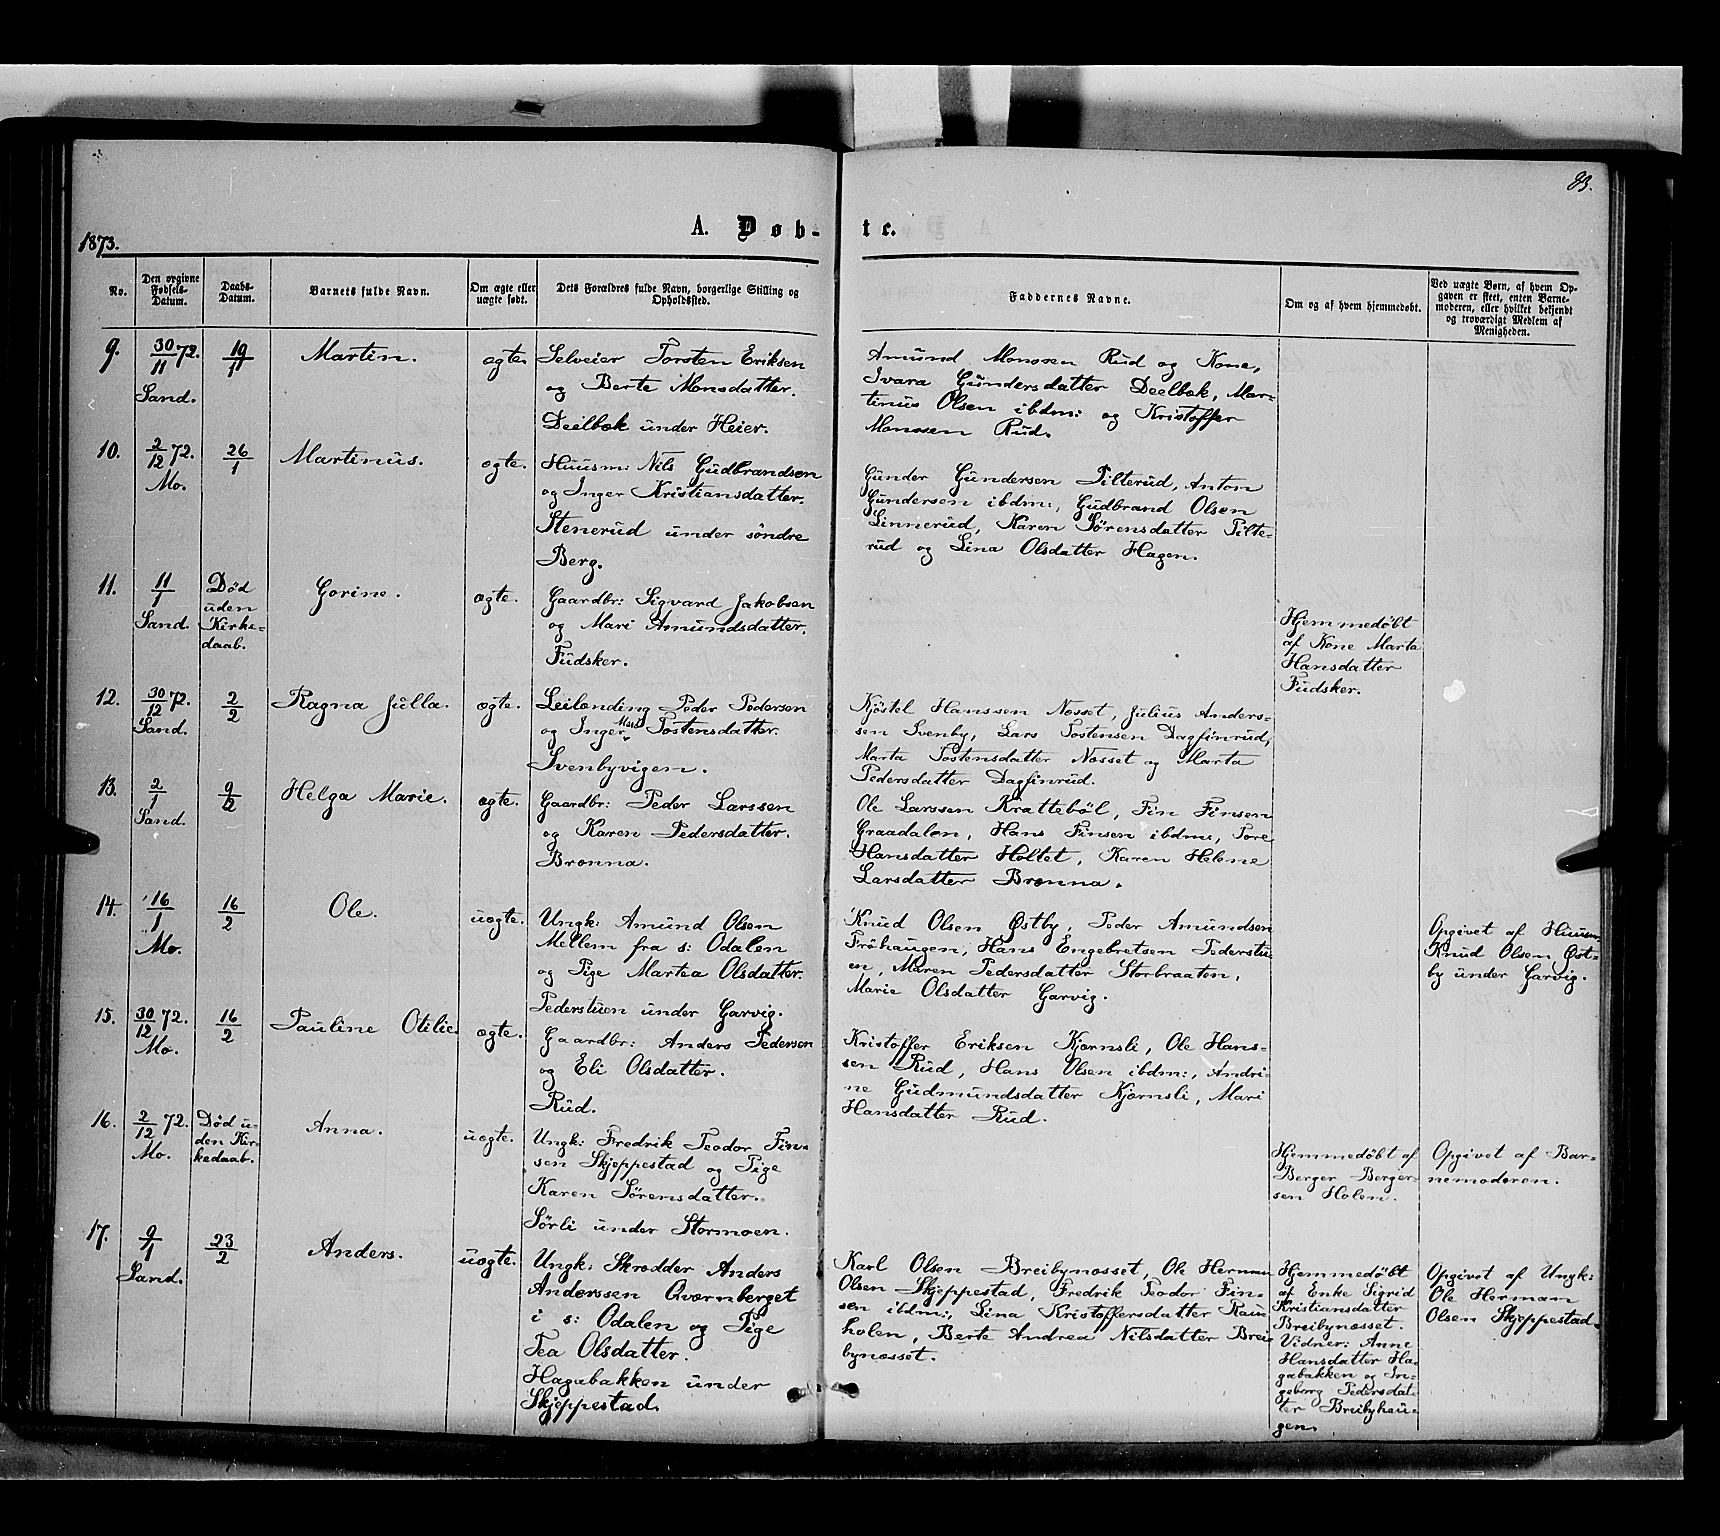 83.
1873.
A. Døb-
te.
No.
Den opgivne
Fødsels-
Datum.
Daabs-
Datum.
Barnets fulde Navn.
Om ægte eller
uægte født.
Dets Forældres fulde Navn, borgerlige Stilling og
Opholdssted.
Faddernes Navne.
Om og af hvem hjemmedøbt.
Ved uægte Børn, af hvem Op-
gaven er skeet, enten Barne-
moderen, eller hvilket bekjendt
og troværdigt Medlem af
Menigheden.
9.
30/11 72.
Sand.
19/1
Martin.
ægte.
Selveier Torsten Eriksen
og Berte Monsdatter.
Deilbæk under Heier.
Amund Monssen Rud og Kone,
Ivara Gundersdatter Deelbæk, Mar-
tinus Olsen ibdm: og Kristoffer
Monssen Rud.
10.
2/12 72.
Mo.
26/1
Martinus.
ægte.
Huusm: Nils Gudbrandsen
og Inger Kristiansdatter.
Stenerud under søndre
Berg.
Gunder Gundersen Tilterud, Anton
Gundersen ibdm:, Gudbrand Olsen
Linnerud, Karen Sørensdatter Tilte-
rud og Lina Olsdatter Hagen.
11.
11/1
Sand.
Død
uden
Kirke-
daab.
Gorine.
ægte.
Gaardbr: Sigvard Jakobsen
og Mari Amundsdatter.
Fudsker.
Hjemmedøbt
af Kone Marta
Hansdatter
Fudsker.
12.
30/12 72.
Sand.
2/2
Ragna Julla.
ægte.
Leilænding Peder Pedersen
og Inger Mari Tostensdatter.
Svenbyvigen.
Kjøstel Hanssen Næsset, Julius Anders-
sen Svenby, Lars Tostensen Dagfinrud,
Marta Tostensdatter Næsset og Marta
Pedersdatter Dagfinrud.
13.
2/1
Sand.
9/2
Helga Marie.
ægte.
Gaardbr: Peder Larssen
og Karen Pedersdatter.
Brænna.
Ole Larssen Krattebøl, Fin Finsen
Graadalen, Hans Finsen ibdm:, Tore
Hansdatter Holtet, Karen Helene
Larsdatter Brænna.
14.
16/1
Mo.
16/2
Ole.
uægte.
Ungk: Amund Olsen
Mellem fra s: Odalen
og Pige Martea Olsdatter.
Pederstuen under Garvig.
Knud Olsen Østby, Peder Amundsen
Frøhaugen, Hans Engebretsen Pederstu-
en, Maren Pedersdatter Storbraaten,
Marie Olsdatter Garvig.
Opgivet af Huusm:
Knud Olsen Øst-
by under Garvig.
15.
30/12 72.
Mo.
16/2
Pauline Otilie.
ægte.
Gaardbr: Anders Pedersen
og Eli Olsdatter.
Rud.
Kristoffer Eriksen Kjernsli, Ole Hans-
sen Rud, Hans Olsen ibdm:, Andri-
ne Gudmundsdatter Kjernsli, Mari
Hansdatter Rud.
16.
2/12 72.
Mo.
Død u-
den Kir-
kedaab.
Anna.
uægte.
Ungk: Fredrik Teodor Fin-
sen Skjeppestad og Pige
Karen Sørensdatter.
Sørli under Stormoen.
Hjemmedøbt af
Berger Berger-
sen Holen.
Opgivet af Bar-
nemoderen.
17.
9/1
Sand.
23/2
Anders.
uægte.
Ungk: Skrædder Anders
Anderssen Qværnberget
i s: Odalen og Pige
Tea Olsdatter.
Hagabakken under
Skjeppestad.
Karl Olsen Breibynæsset, Ole Herman
Olsen Skjeppestad, Fredrik Teodor Fin-
sen ibdm:, Lina Kristoffersdatter Rau-
holen, Berte Andrea Nilsdatter Brei-
bynæsset.
Hjemmedøbt
af Enke Sigrid
Kristiansdatter
Breibynæsset.
Vidner: Anne
Hansdatter Ha-
gabakken og In-
geborg Pedersdat-
ter Breibyhau-
gen.
Opgivet af Ungk:
Ole Herman
Olsen Skjeppestad.